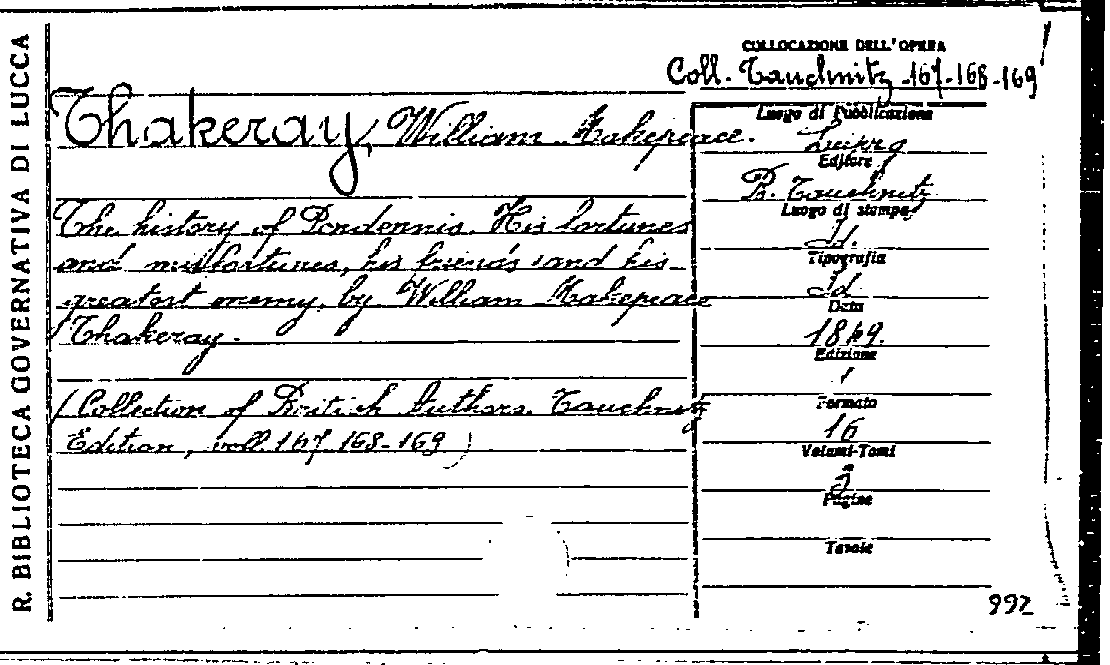 R. BIBLIOTECA GOVERNATIVA DI LUCCA
COLLOCAZIONE DELL'OPERA
Coll. Tauchnitz 167-168-169
Thakeray, William Makepeace.
The history of Pendennis. His fortunes
and misfortunes, his friends and his
greatest enemy, by William Makepeace
Thakeray.
(Collection of British Authors. Tauchnitz
Edition, voll. 167-168-169)
Luogo di Pubblicazione
Leipzig
Editore
B. Tauchnitz
Luogo di stampa
Id.
Tipografia
Id.
Data
1849.
Edizione
/
Formato
16
Volumi-Tomi
3
Pagine
Tavole
992